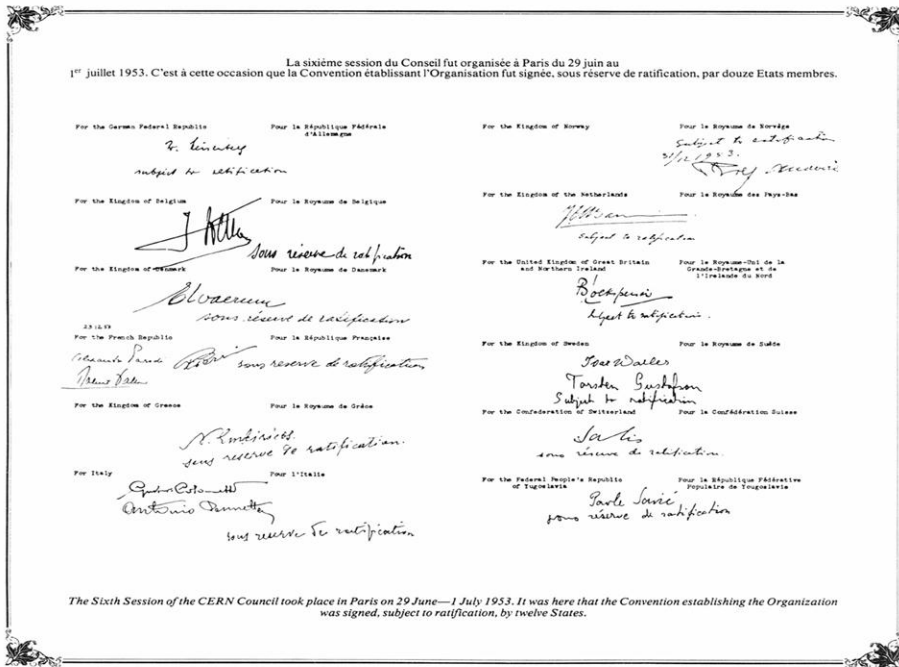 La sixième session du Conseil fut organisée à Paris du 29 juin au
1er juillet 1953. C'est à cette occasion que la Convention établissant l'Organisation fut signée, sous réserve de ratification, par douze Etats membres.
For the German Federal Republic
Pour la République Fédérale
d'Allemagne
subject to ratification
For the Kingdom of Belgium
Pour le Royaume de Belgique
sous réserve de ratification
For the Kingdom of Denmark
Pour le Royaume de Danemark
sous réserve de ratification
23.12.53
For the French Republic
Pour la République Française
sous reserve de ratification
For the Kingdom of Greece
Pour le Royaume de Grèce
sous reserve de ratification.
For Italy
Pour l'Italie
sous reserve de ratification
For the Kingdom of Norway
Pour le Royaume de Norvège
Subject to ratification
31/12 1953.
For the Kingdom of the Netherlands
Pour le Royaume des Pays-Bas
Subject to ratification
For the United Kingdom of Great Britain
and Northern Ireland
Pour le Royaume-Uni de la
Grande-Bretagne et de
l'Irelande du Nord
to ratification.
For the Kingdom of Sweden
Pour le Royaume de Suède
Ivar Waller
Torsten Gustafson
Subject to ratification
For the Confederation of Switzerland
Pour la Confédération Suisse
sous réserve de ratification.
For the Federal People's Republic
of Yugoslavia
Pour la République Fédérative
Populaire de Yougoslavie
Pavle Savić
sous réserve de ratification
The Sixth Session of the CERN Council took place in Paris on 29 June—1 July 1953. It was here that the Convention establishing the Organization
was signed, subject to ratification, by twelve States.